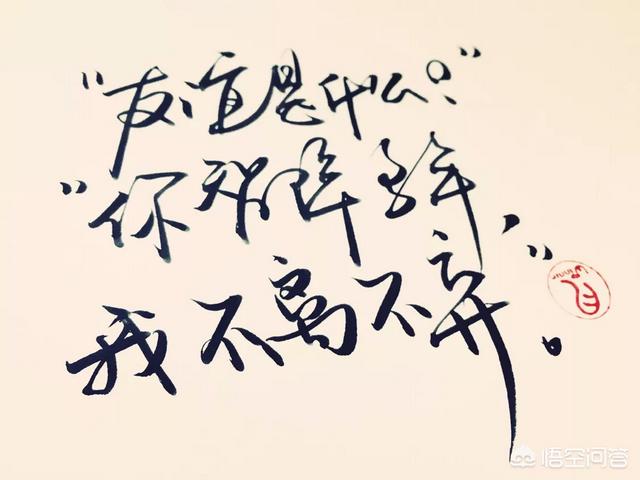 “友谊是什么?”
“你
我不离不弃。”
悟空问答